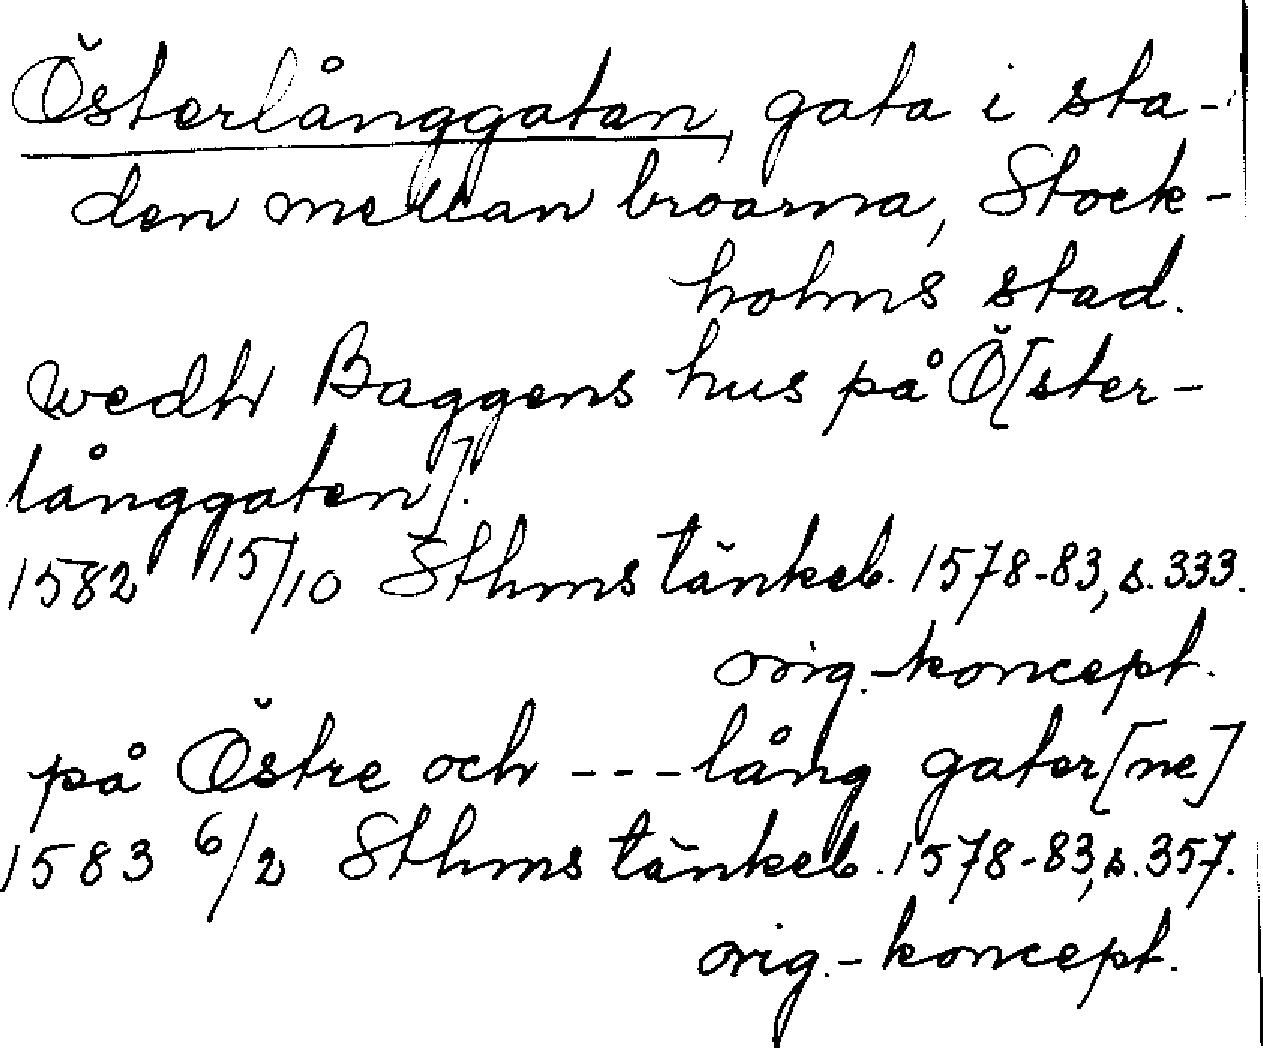 Österlånggatan, gata i sta-
den mellan broarna, Stock-
holms stad.
wedh Baggens hus på Ö[ster-
långgaten].
1582 15/10 Sthms tänkeb. 1578-83, s. 333.
orig.-koncept.
på Östre och ---lång gater[ne]
1583 6/2 Sthms tänkeb. 1578-83, s. 357.
orig.-koncept.